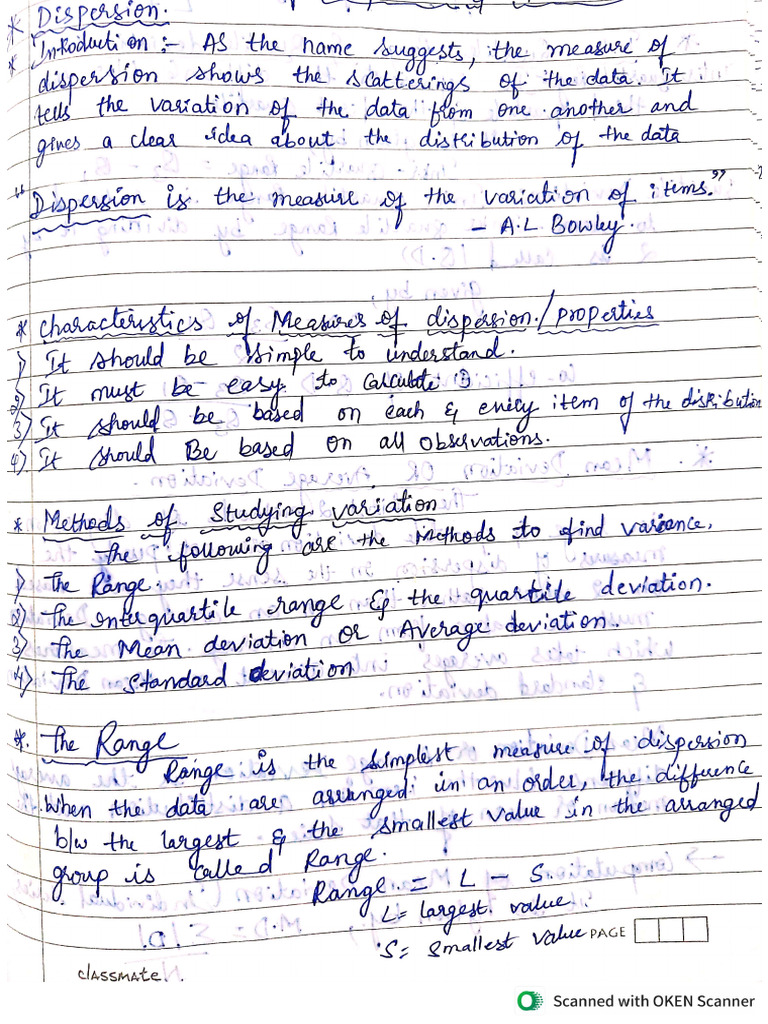 * Dispersion.
* Introduction :- As the name suggests, the measure of
dispersion shows the scatterings of the data. It
tells the variation of the data from one another and
gives a clear idea about the distribution of the data
"Dispersion is the measure of the variation of items."
- A.L Bowley.
* Characteristics of Measures of dispersion./properties
1) It should be simple to understand.
2) It must be easy to calculate
3) It should be based on each & every item of the distribution
4) It should Be based on all observations.
* Methods of Studying variation
The following are the Methods to find variance.
1) The Range.
2) The interquartile range & the quartile deviation.
3) The Mean deviation or Average deviation.
4) The standard deviation
*. The Range
Range is the simplest measure of dispersion
when the data are arranged in an order, the difference
b/w the largest & the smallest value in the arranged
group is called Range.
Range = L - S.
L = largest value.
S = smallest value PAGE
classmate.
Scanned with OKEN Scanner